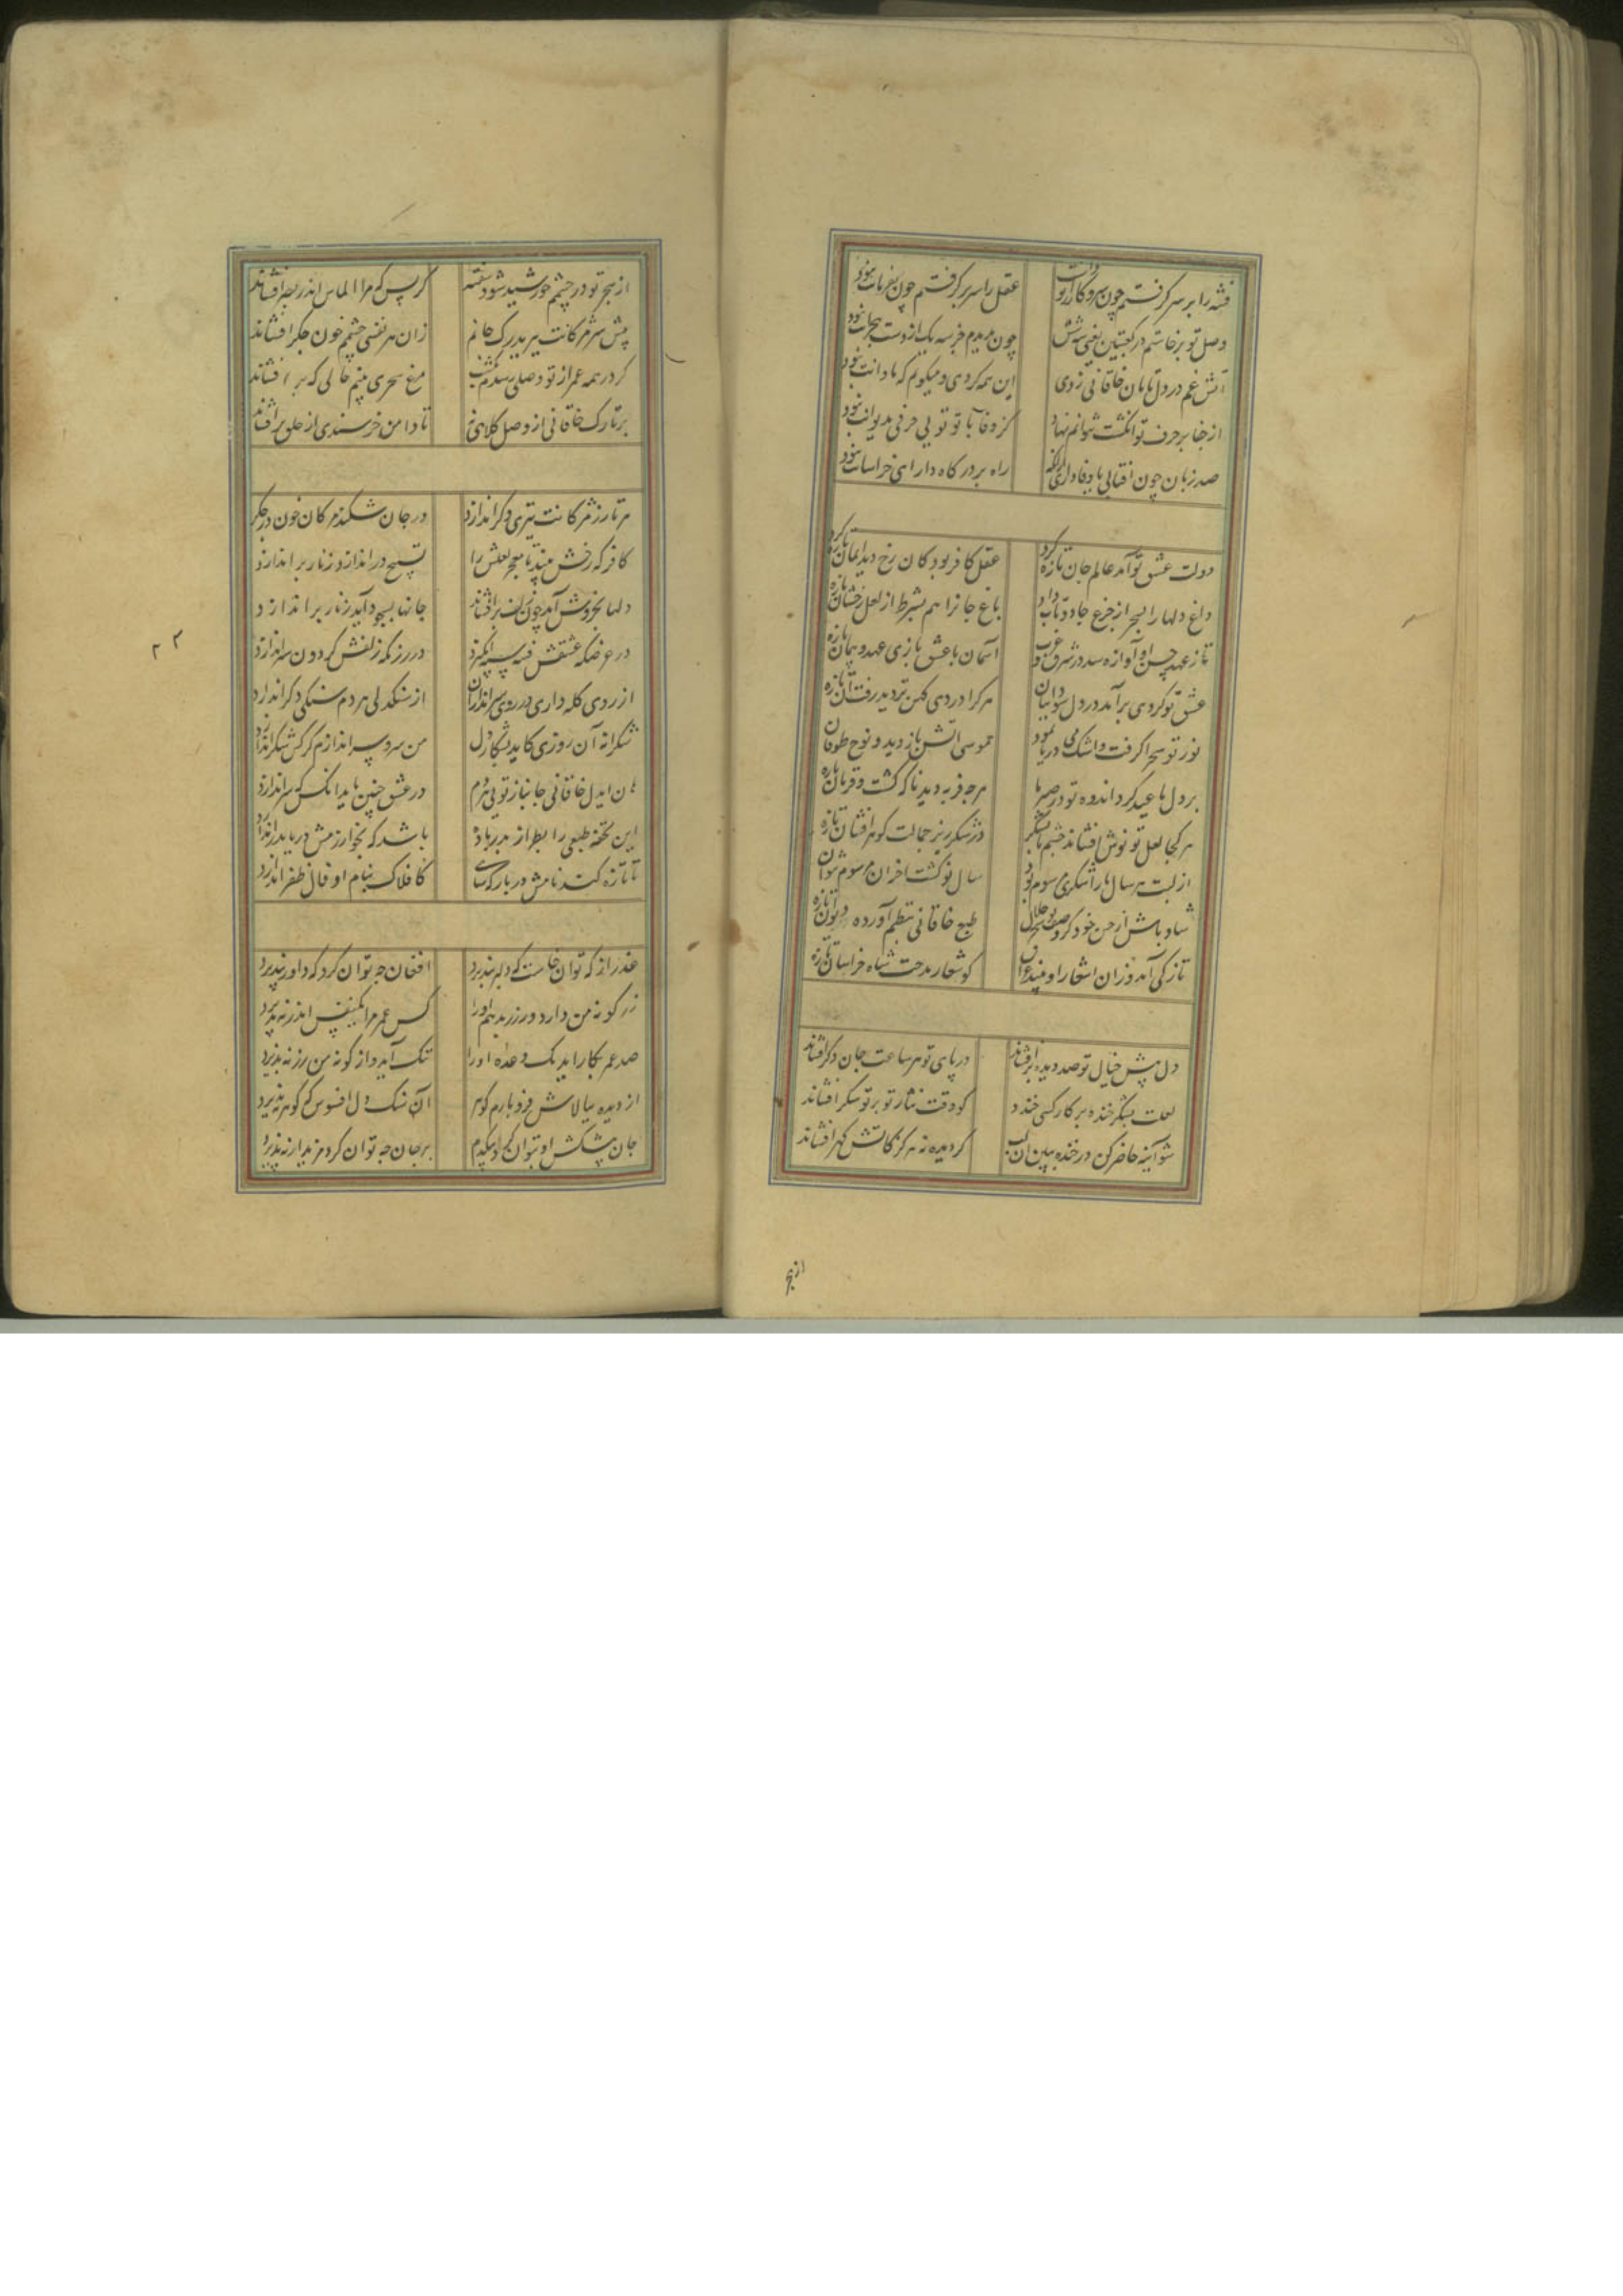 فتنه را بر سر گرفتم چون سر و کار از تو داشت
عقل را سر بر گرفتم چون بفرمانت نبود
وصل تو برخاستم در کعبتین یعنی سه شش
چون بدیدم جز سه یک از دست هجرانت نبود
آتش غم در دل تابان خاقانی زدی
این همه کردی و میگویم که تاوانت نبود
از جفا بر حرف تو انگشت نتوانم نهاد
کز وفا تا تو تویی حرفی بدیوانت نبود
صد زبان چون آفتابی با وفا داری
راه بر درگاه دارای خراسانت نبود
دولت عشق تو آمد عالم جان تازه کرد
عقل کافر بود کان رخ دید ایمان تازه کرد
داغ دلها را بسحر از جزع جادو تاب داد
باغ جانرا هم بشرط از لعل رخشان تازه
تا ز عهد حسن او آوازه شد در شرق و غرب
آسمان با عشق بازی عهد و پیمان تازه
عشق تو گردی برآمد در دل سودائیان
هر کرا دردی کهن تر دید رفت آن تازه
نور تو سحرا گرفت و اشک می دریا نمود
موسی آتش باز دید و نوح طوفان
بر دل ما عید کرد اندوه تو در صبر ما
هر چه فربه دید ناگه کشت و قربان تازه
هر کجا لعل تو نوش افشاند چشم ما بشکر
در شکر ریز جمالت گوهر افشان تازه
از لبت هر سال ما را شکری مرسوم بود
سال نو گشت آخر آن مرسوم نتوان
شاد باش از حسن خود کز وصف سحر حلال
طبع خاقانی بنظم آورده دیوان تازه
تازگی آمد وزان اشعار او
کو شعار مدحت شاه خراسان تازه
دل پیش خیال تو صد دیده برافشاند
در پای تو هر ساعت جان دگر افشاند
لعلت بشکر خنده بر کار کسی خندد
کو وقت نثار تو بر تو شکر افشاند
شو آینه حاضر کن در خنده ببین آن لب
گر دیده نه هرگز کاتش گهر افشاند
از هجر
از هجر تو در چشم خورشید شود سفته
گر پس که مرا الماس اندر بصر افشاند
پیش سر مژگانت میرد رگ جانم
زان هر نفسی چشمم خون جگر افشاند
گر در همه عمر از تو وصلی رسدم یک شب
مرغ سحری بینم حالی که پر افشاند
بر تارک خاقانی از وصل کلاهی نه
تا دامن خرسندی از خلق برافشاند
هر تار ز مژگانت تیری دگر اندازد
در جان شکند پیکان خون در جگر
کافر که رخش بیند با معجز لعلش را
تسبیح در اندازد زنار براندازد
دلها بخروش آید چون زلف برافشاند
جانها بسجود آید زنار براندازد
در عرضگه عشقش فتنه سپه انگیزد
در رزمگه زلفش گردون سپر اندازد
از روی کله داری در روی سراندازان
از سنگدلی هر دم سنگی دگر اندازد
شکرانه آن روزی کاید بشکار دل
من سر و سپر اندازم گر کس شکر اندازد
هان ای دل خاقانی جانباز تویی هر دم
در عشق چنین باید آنکس که سر اندازد
این تحفه طبعی را بطراز بدریا ده
باشد که بخوارزمش دریا بدر اندازد
تا تازه کند نامش در بارگه شاهی
کافلاک بنام او فال ظفر اندازد
عذر از که توان خواست که دلبر نپذیرد
افغان چه توان کرد که داور نپذیرد
زر گونه من دارد ور زر بدهم او را
کس عمر مرا یک نفس اندر نپذیرد
صد عمر بکار آید یک وعده او را
تنگ آید و از گونه من زر نپذیرد
از دیده ببالاش فرو بارم گوهر
آن سنگ دل افسوس که گوهر نپذیرد
جان پیشکش او نتوان کرد
بر جان چه توان کرد مزید ار نپذیرد
۲۲